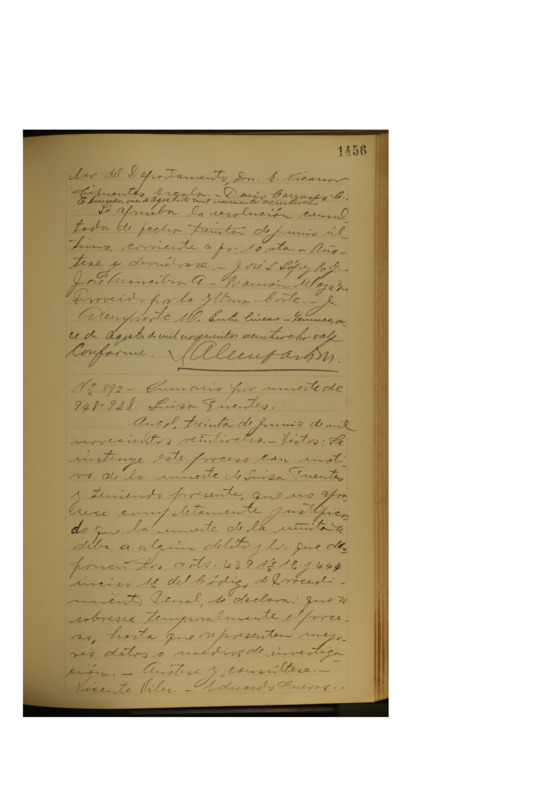 1456
del Departamento, Dn. E. Nicanor
Cifuentes Dario
Temuco, once de Agosto de mil novecientos veintiocho
Se aprueba la resolución consul
tada de fecha treinta de junio úl
timo, corriente a fs. 10 vta. - Anó-
tese y devuélvase. - José L López
José Mancilla A - Ramón
Proveído por la Iltma Corte. - J.
M. Entre líneas - Temuco, on-
ce de Agosto de mil novecientos veintiocho vale
Conforme.
Nº 892 - Sumario por muerte de
948-928 Luisa Fuentes.
Angol, treinta de junio de mil
novecientos veintiocho. - Vistos: Se
instruye este proceso con moti-
vo de la muerte de Luisa Fuentes
y teniendo presente, que no apa
rece completamente justifica-
do que la muerte de la se
deba a algún delito y lo que dis-
ponen los arts. 439 Nº 1º y 444
inciso 1º del Código de Procedi-
miento Penal, se declara: que se
sobresee temporalmente el proce-
so, hasta que se presenten mejo-
res datos o medios de investiga-
ción. - Anótese y consúltese. -
Vicente - Eduardo Cuevas